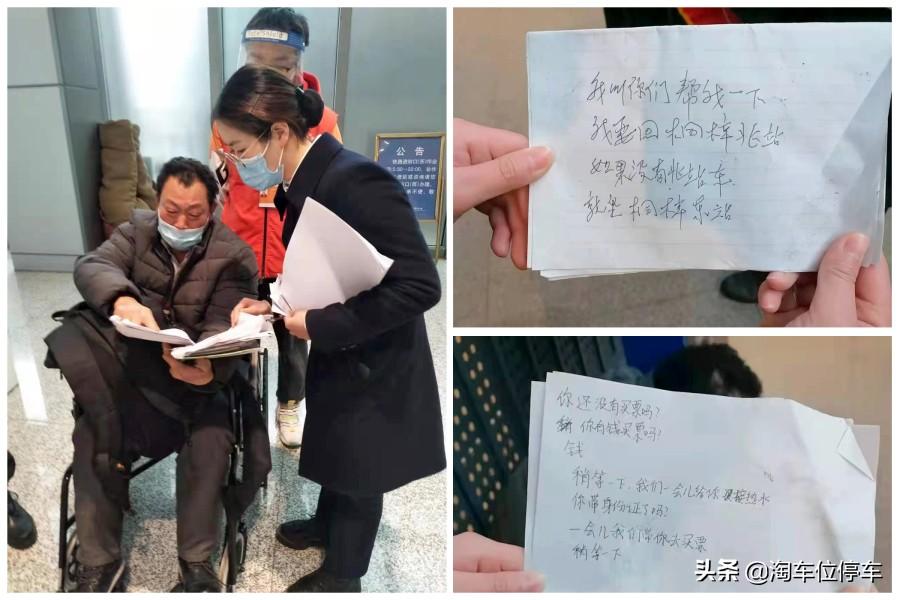 公告
我叫你们帮我一下
我要回桐梓北站
如果没有北站车
就坐桐梓东站
你还没有买票吗?
你有钱买票吗?
钱
稍等一下,我们一会儿给你接热水
你带身份证了吗?
一会儿我们带你去买票
稍等一下
头条 @淘车位停车